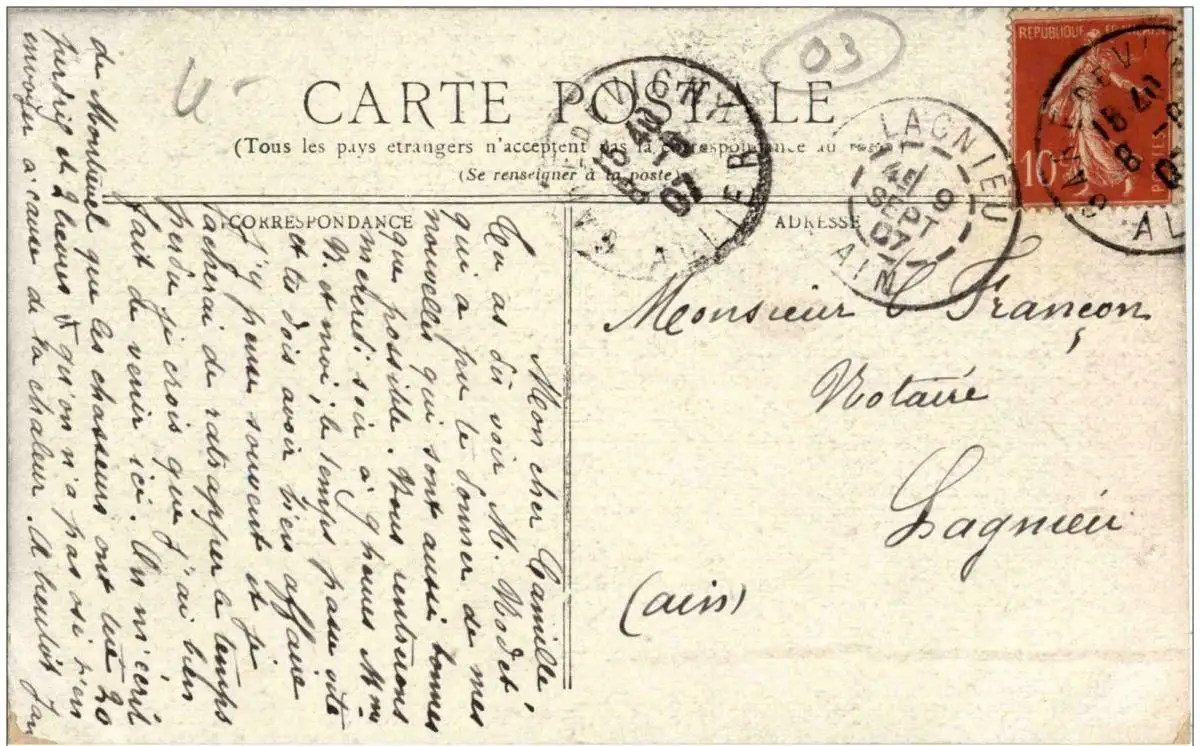 03
CARTE POSTALE
(Tous les pays etrangers n'acceptent pas la correspondance au recto)
(Se renseigner à la poste)
CORRESPONDANCE
ADRESSE
REPUBLIQUE FRANÇAISE
10
POSTES
LAGNIEU
9
SEPT
07
AIN
ALLIER
07
Monsieur C Françon
Notaire
Lagnieu
(ain)
Mon cher Camille,
Tu as dû voir M. Nodet
qui a pu te donner de mes
nouvelles qui sont aussi bonnes
que possible. Nous rentrerons
mercredi soir à 9 heures Mme
N. et moi; le temps passe vite
et tu dois avoir bien affaire
J'y pense souvent et je
tacherai de rattrapper le temps
perdu je crois que j'ai bien
fait de venir ici. On m'écrit
de Montluel que les chasseurs ont tué 20
perdrix et 2 lievres & qu'on n'a pas osé rien
envoyer à cause de la chaleur. A bientôt